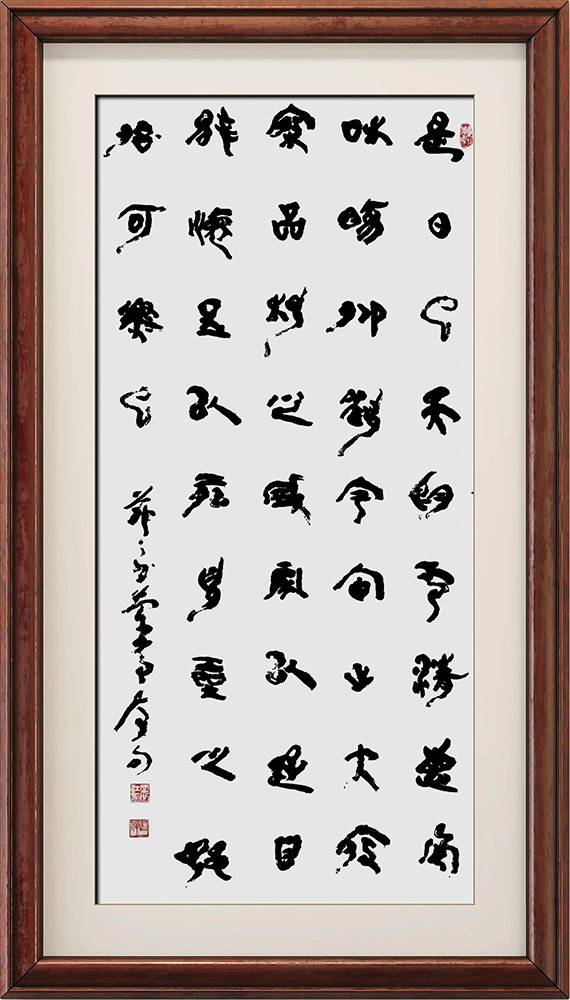 是日也天朗氣清惠風
咊暢仰觀宇宙之大俯
察品類之盛所以遊目
騁懷足以極視聽之娛
信可樂也